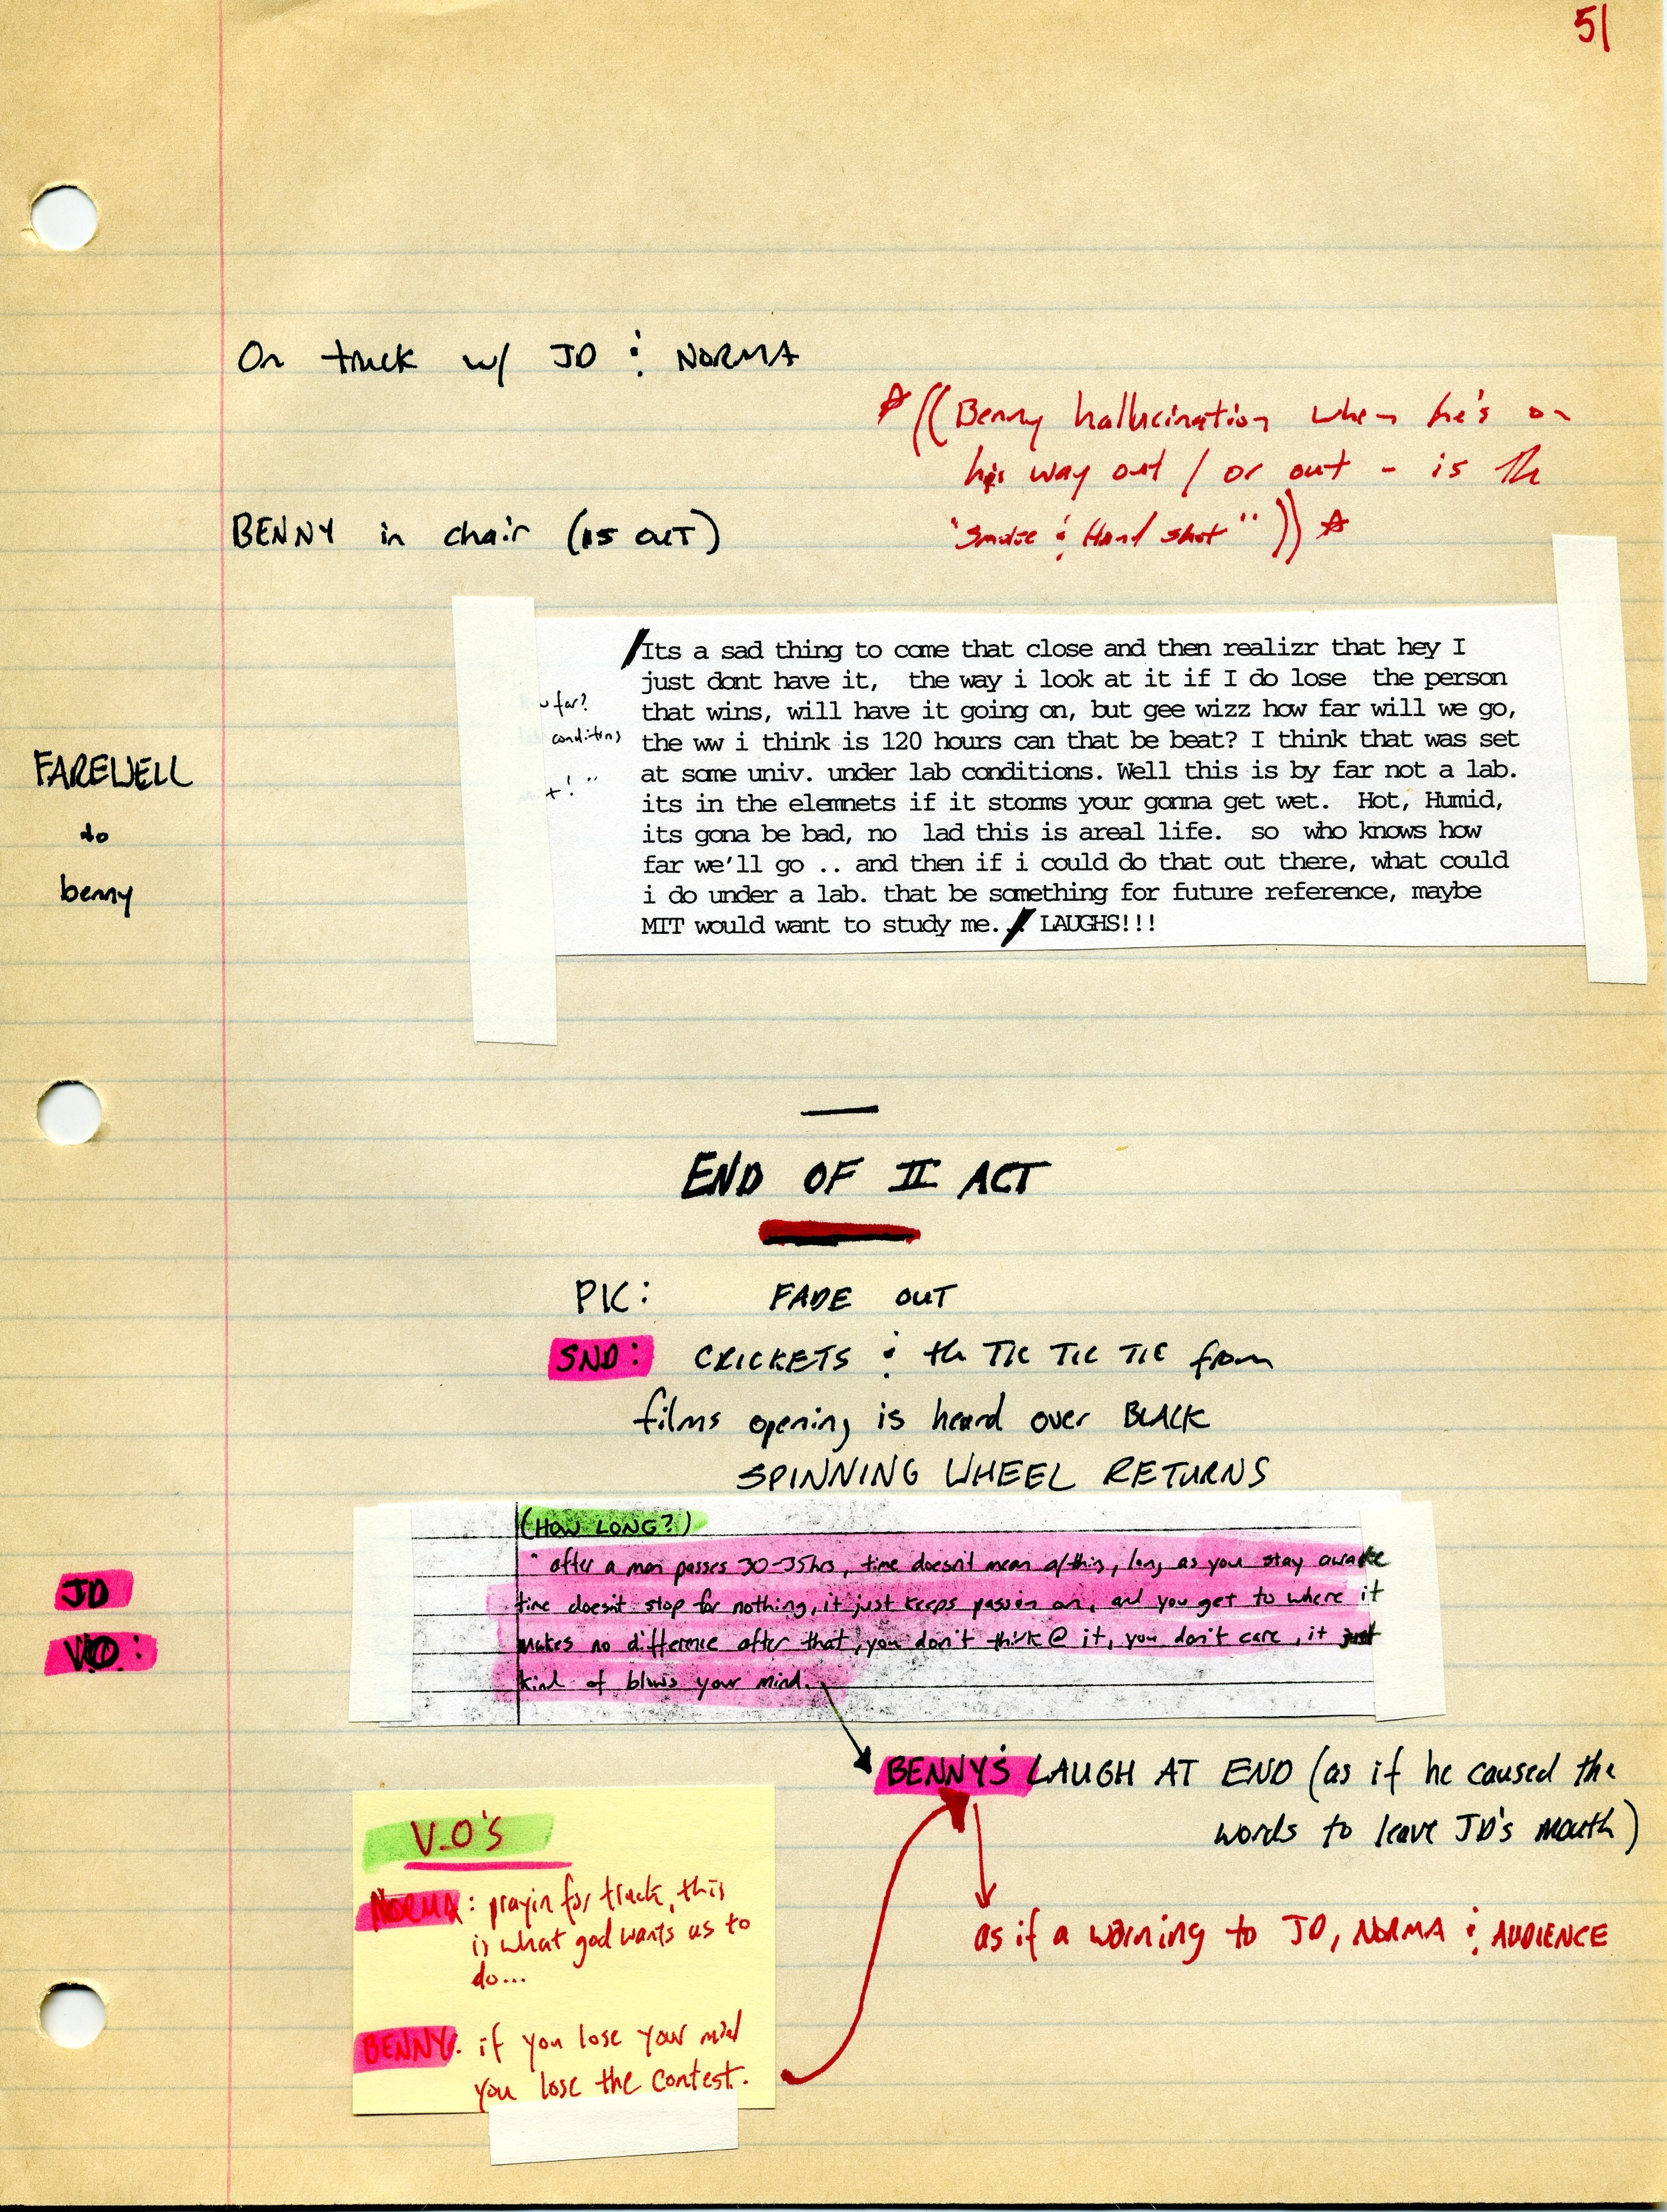 51
On truck w/ JD & NORMA
☆ ((Benny hallucination when he's on
his way out / or out - is th
"Smoke & Hand shot")) ☆
BENNY in chair (is OUT)
Its a sad thing to come that close and then realizr that hey I
just dont have it,  the way i look at it if I do lose  the person
that wins, will have it going on, but gee wizz how far will we go,
the ww i think is 120 hours can that be beat? I think that was set
at some univ. under lab conditions. Well this is by far not a lab.
its in the elemnets if it storms your gonna get wet.  Hot, Humid,
its gona be bad, no  lad this is areal life.  so  who knows how
far we'll go .. and then if i could do that out there, what could
i do under a lab. that be something for future reference, maybe
MIT would want to study me. LAUGHS!!!
far?
conditions
FAREWELL
to
benny
END OF II ACT
PIC: FADE OUT
SND: CRICKETS & th TIC TIC TIC from
films opening is heard over BLACK
SPINNING WHEEL RETURNS
(HOW LONG?)
JD
VO:
"after a man passes 30-35hrs, time doesn't mean a/thing, long as you stay awake
time doesn't stop for nothing, it just keeps passin on, and you get to where it
makes no difference after that, you don't think @ it, you don't care, it just
kind of blows your mind.
BENNY'S LAUGH AT END (as if he caused the
words to leave JD's mouth)
as if a warning to JD, NORMA & AUDIENCE
V.O's
NORMA: prayin for truck, this
is what god wants us to
do...
BENNY: if you lose your mind
you lose the contest.